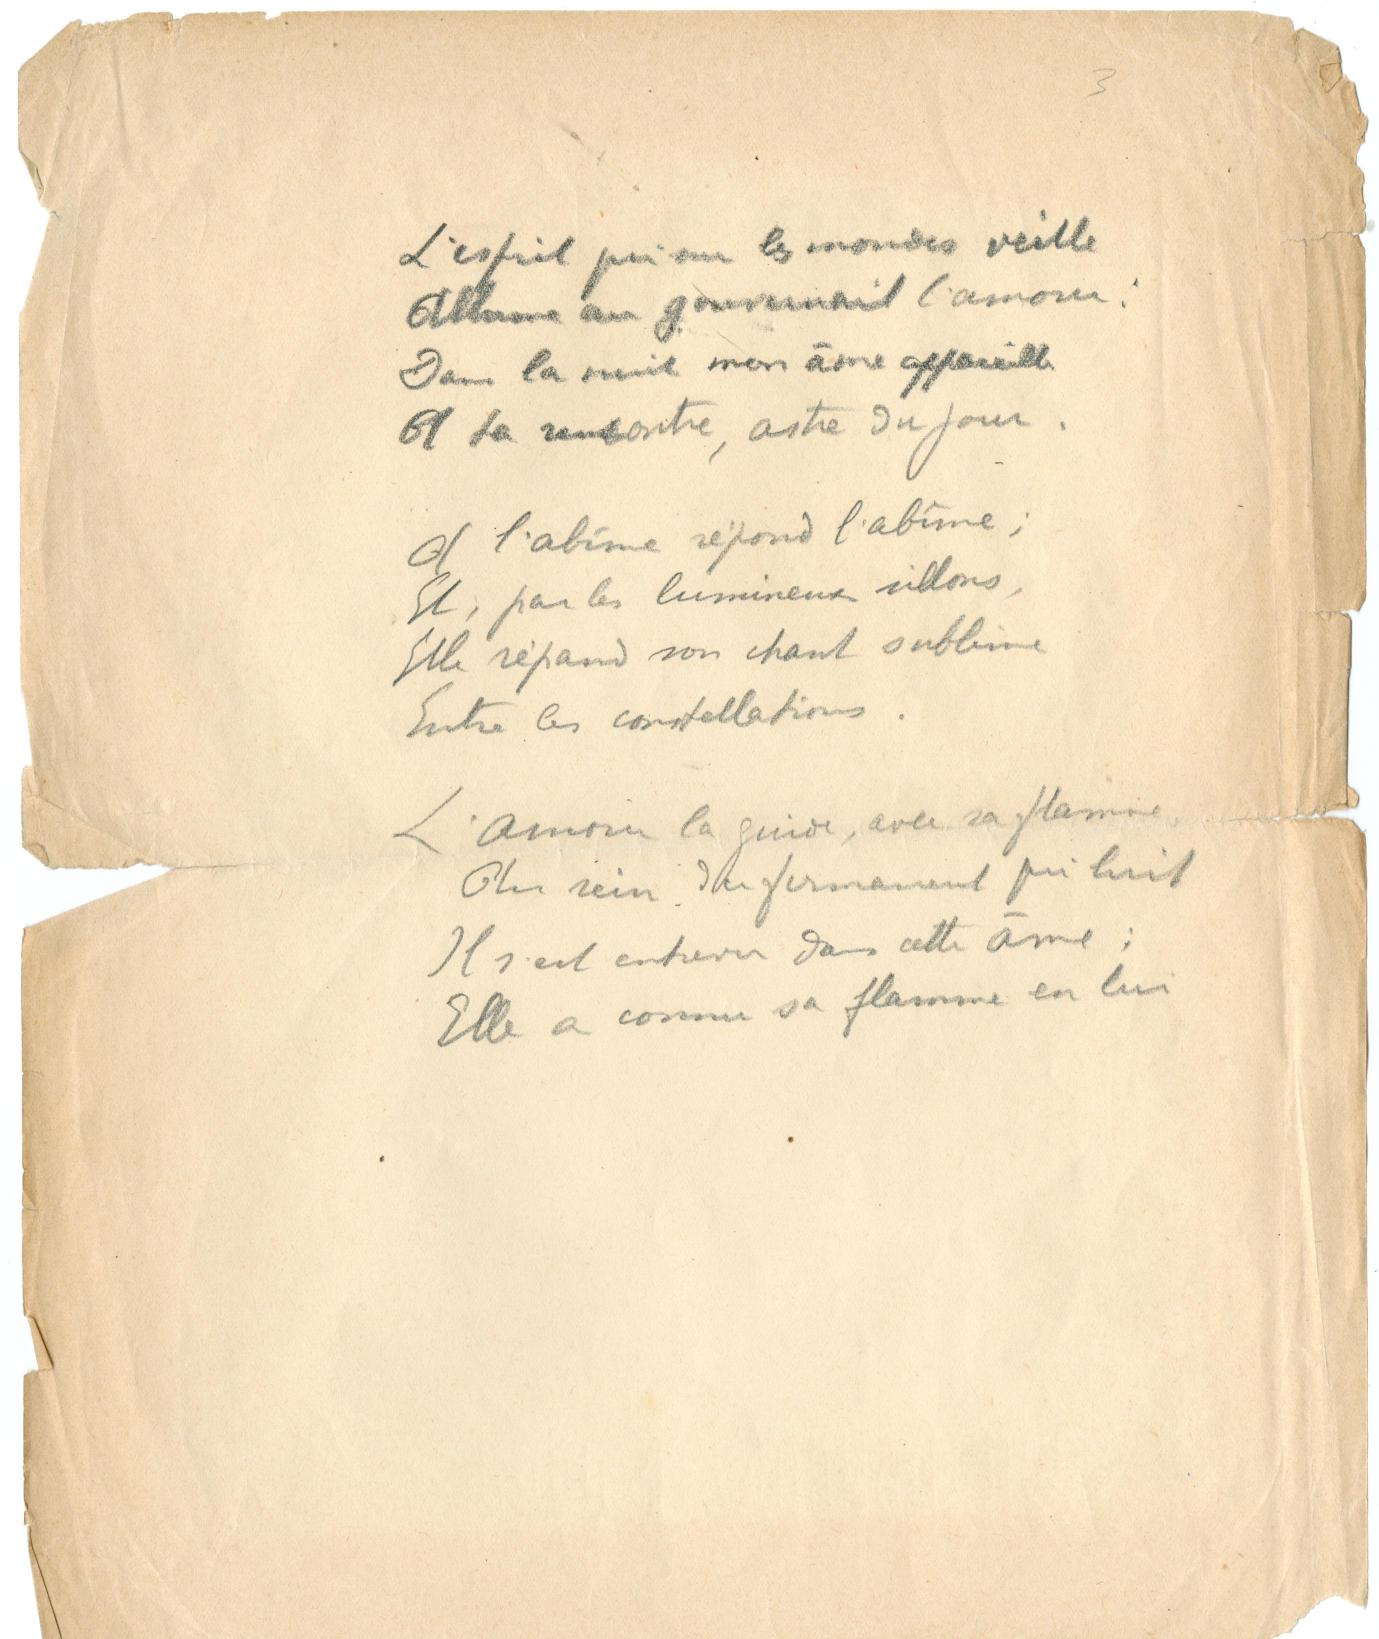 3
L'esprit qui sur les mondes veille
Allume au gouvernail l'amour :
Dans la nuit mon âme appareille
A ta rencontre, astre du jour.
A l'abîme répond l'abîme ;
Et, par les lumineux sillons,
Elle répand son chant sublime
Entre les constellations.
L'amour la guide, avec sa flamme,
Au sein du firmament qui luit
Il s'est entrevu dans cette âme ;
Elle a connu sa flamme en lui